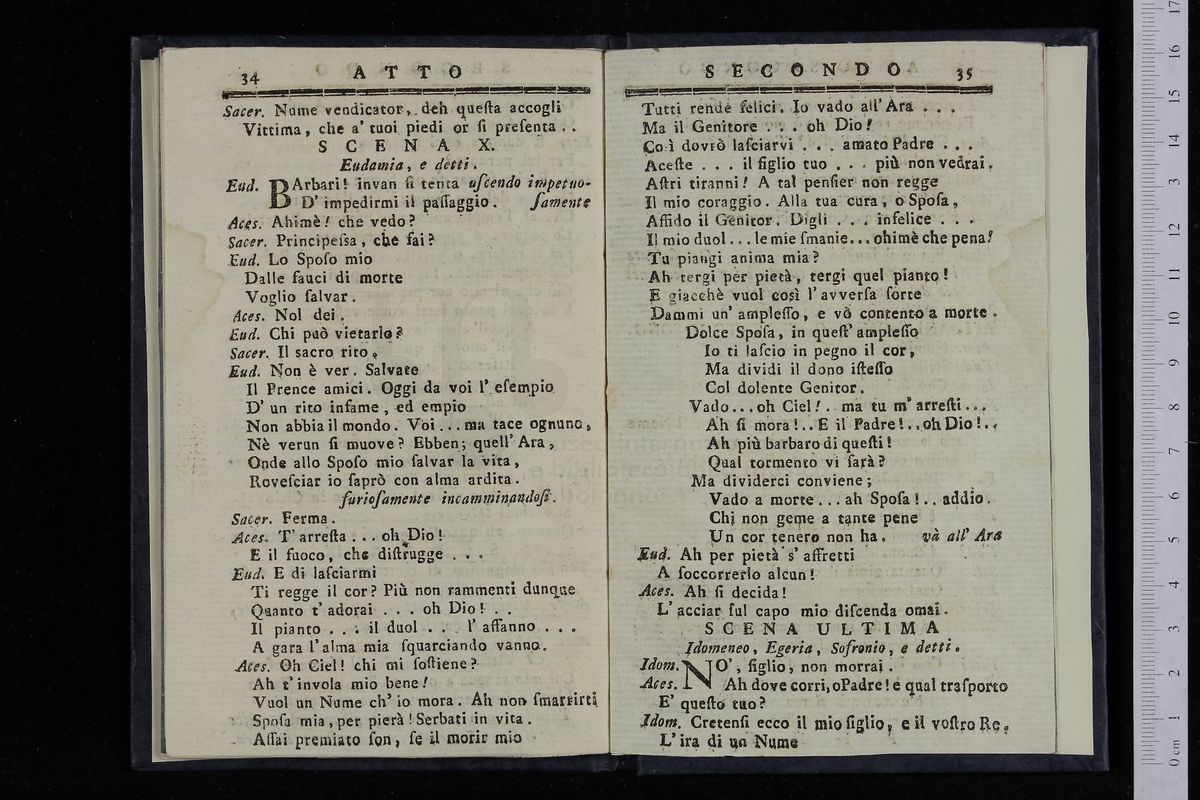 34 ATTO
Sacer. Nume vendicator, deh queſta accogli
Vittima, che a' tuoi piedi or ſi preſenta . .
SCENA X.
Eudamia, e detti.
Eud. BArbari! invan ſi tenta uſcendo impetuo-
D' impedirmi il paſſaggio. ſamente
Aces. Ahimè! che vedo?
Sacer. Principeſsa, che fai?
Eud. Lo Spoſo mio
Dalle fauci di morte
Voglio ſalvar.
Aces. Nol dei.
Eud. Chi può vietarlo?
Sacer. Il sacro rito.
Eud. Non è ver. Salvate
Il Prence amici. Oggi da voi l' eſempio
D' un rito infame, ed empio
Non abbia il mondo. Voi ... ma tace ognuno,
Nè verun ſi muove? Ebben; quell' Ara,
Onde allo Spoſo mio ſalvar la vita,
Roveſciar io ſaprò con alma ardita.
furioſamente incamminandoſi.
Sacer. Ferma.
Aces. T' arreſta ... oh Dio!
E il fuoco, che diſtrugge ...
Eud. E di laſciarmi
Ti regge il cor? Più non rammenti dunque
Quanto t' adorai ... oh Dio! . .
Il pianto ... il duol ... l' affanno ...
A gara l' alma mia ſquarciando vanno.
Aces. Oh Ciel! chi mi ſoſtiene?
Ah t' invola mio bene!
Vuol un Nume ch' io mora. Ah non ſmarrirti
Spoſa mia, per pierà! Serbati in vita.
Aſſai premiato ſon, ſe il morir mio
SECONDO 35
Tutti rende felici. Io vado all' Ara ...
Ma il Genitore ... oh Dio!
Così dovrò laſciarvi ... amato Padre ...
Aceſte ... il figlio tuo ... più non vedrai.
Aſtri tiranni! A tal penſier non regge
Il mio coraggio. Alla tua cura, o Spoſa,
Affido il Genitor. Digli ... infelice ...
Il mio duol ... le mie ſmanie ... ohimè che pena!
Tu piangi anima mia?
Ah tergi per pietà, tergi quel pianto!
E giacchè vuol così l' avverſa ſorte
Dammi un' ampleſſo, e vò contento a morte.
Dolce Spoſa, in queſt' ampleſſo
Io ti laſcio in pegno il cor,
Ma dividi il dono iſteſſo
Col dolente Genitor.
Vado ... oh Ciel! . ma tu m' arreſti ...
Ah ſi mora! .. E il Padre! .. oh Dio! ..
Ah più barbaro di queſti!
Qual tormento vi ſarà?
Ma dividerci conviene;
Vado a morte ... ah Spoſa! .. addio.
Chi non geme a tante pene
Un cor tenero non ha. và all' Ara
Eud. Ah per pietà s' affretti
A ſoccorrerlo alcun!
Aces. Ah ſi decida!
L' acciar ſul capo mio diſcenda omai.
SCENA ULTIMA
Idomeneo, Egeria, Sofronio, e detti.
Idom. NO', figlio, non morrai.
Aces. Ah dove corri, o Padre! e qual traſporto
E' queſto tuo?
Idom. Cretenſi ecco il mio figlio, e il voſtro Re.
L' ira di un Nume